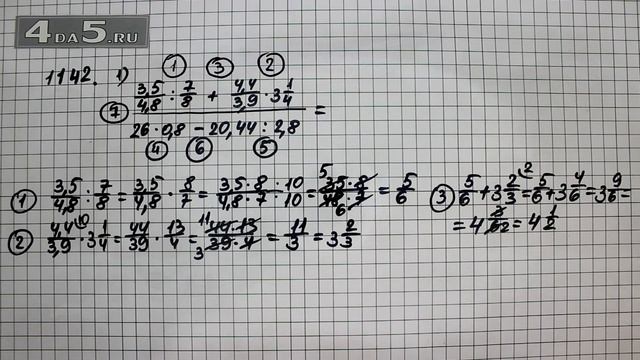 4DA5.RU
1142. 1) ① ③ ②
⑦ 3,5/4,8 : 7/8 + 4,4/3,9 · 3 1/4
26 · 0,8 − 20,44 : 2,8 =
④ ⑥ ⑤
① 3,5/4,8 : 7/8 = 3,5/4,8 · 8/7 = 3,5·8·10/4,8·7·10 = 5 35·8/48·7 6 = 5/6
② 4,4/3,9 10 · 3 1/4 = 44/39 · 13/4 = 11 44·13/39·4 3 = 11/3 = 3 2/3
③ 5/6 + 3 2/3 2 = 5/6 + 3 4/6 = 3 9/6 =
= 4 3/6 2 = 4 1/2